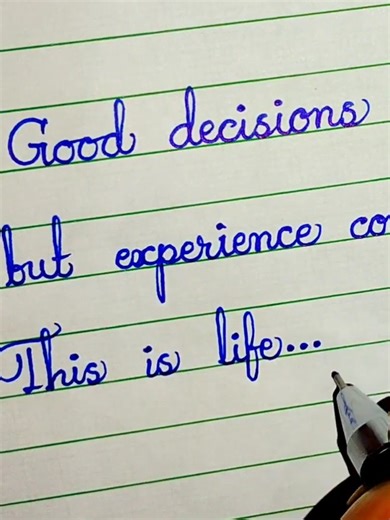 Good decisions
but experience co
This is life...